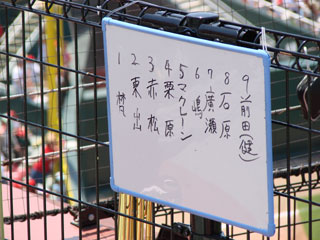 1 梵
2 東出
3 赤松
4 栗原
5 マクレーン
6 嶋
7 廣瀬
8 石原
9 前田(健)